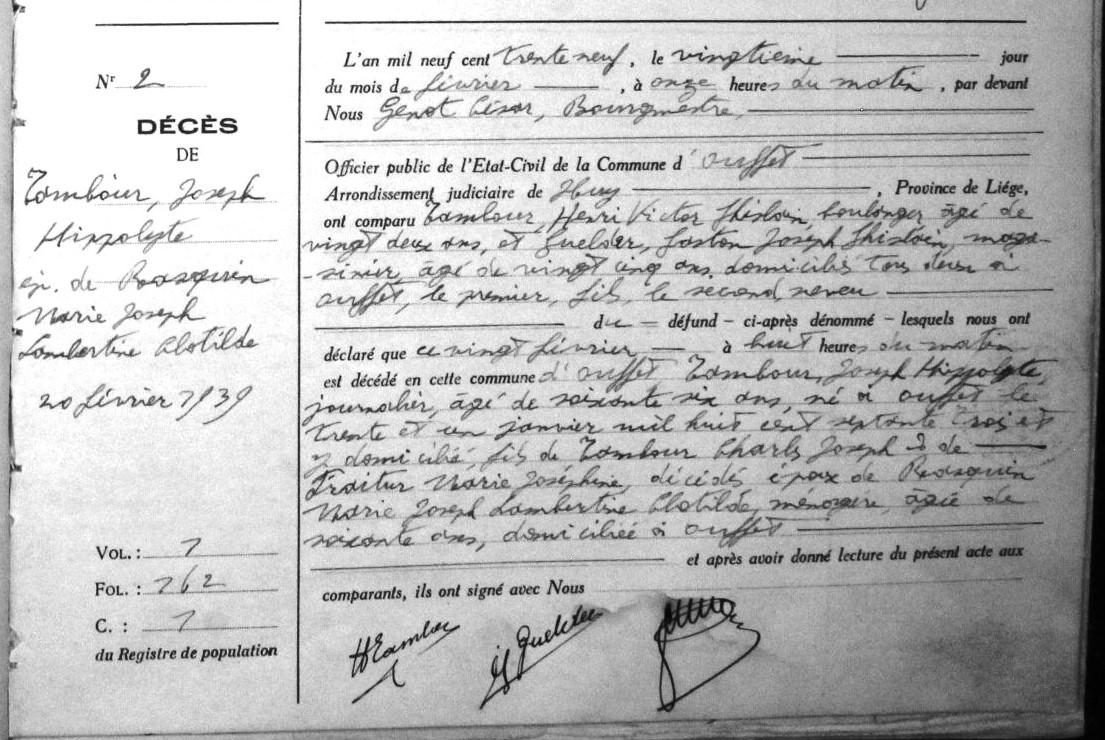 Nr 2
DÉCÈS
DE
Tambour, Joseph
Hippolyte
ép. de Rasquin
Marie Joseph
Lambertine Clotilde
20 février 1939
VOL. : 1
FOL. : 162
C. : 1
du Registre de population
L'an mil neuf cent trente neuf, le vingtième jour
du mois de février, à onze heures du matin, par devant
Nous Genot César, Bourgmestre,
Officier public de l'Etat-Civil de la Commune d'Ouffet
Arrondissement judiciaire de Huy, Province de Liége,
ont comparu Tambour, Henri Victor Ghislain, boulanger âgé de
vingt deux ans, et Guelder, Gaston Joseph Ghislain, maga-
-sinier, âgé de vingt cinq ans, domiciliés tous deux à
Ouffet, le premier, fils, le second, neveu
du défund - ci-après dénommé - lesquels nous ont
déclaré que ce vingt février à huit heures du matin
est décédé en cette commune d'Ouffet Tambour, Joseph Hippolyte,
journalier, âgé de soixante six ans, né à Ouffet le
trente et un janvier mil huit cent septante trois et
y domicilié, fils de Tambour Charles Joseph & de
Traitur Marie Joséphine, décédés époux de Rasquin
Marie Joseph Lambertine Clotilde, ménagère, âgée de
soixante ans, domiciliée à Ouffet
et après avoir donné lecture du présent acte aux
comparants, ils ont signé avec Nous
HTambour
G Guelder